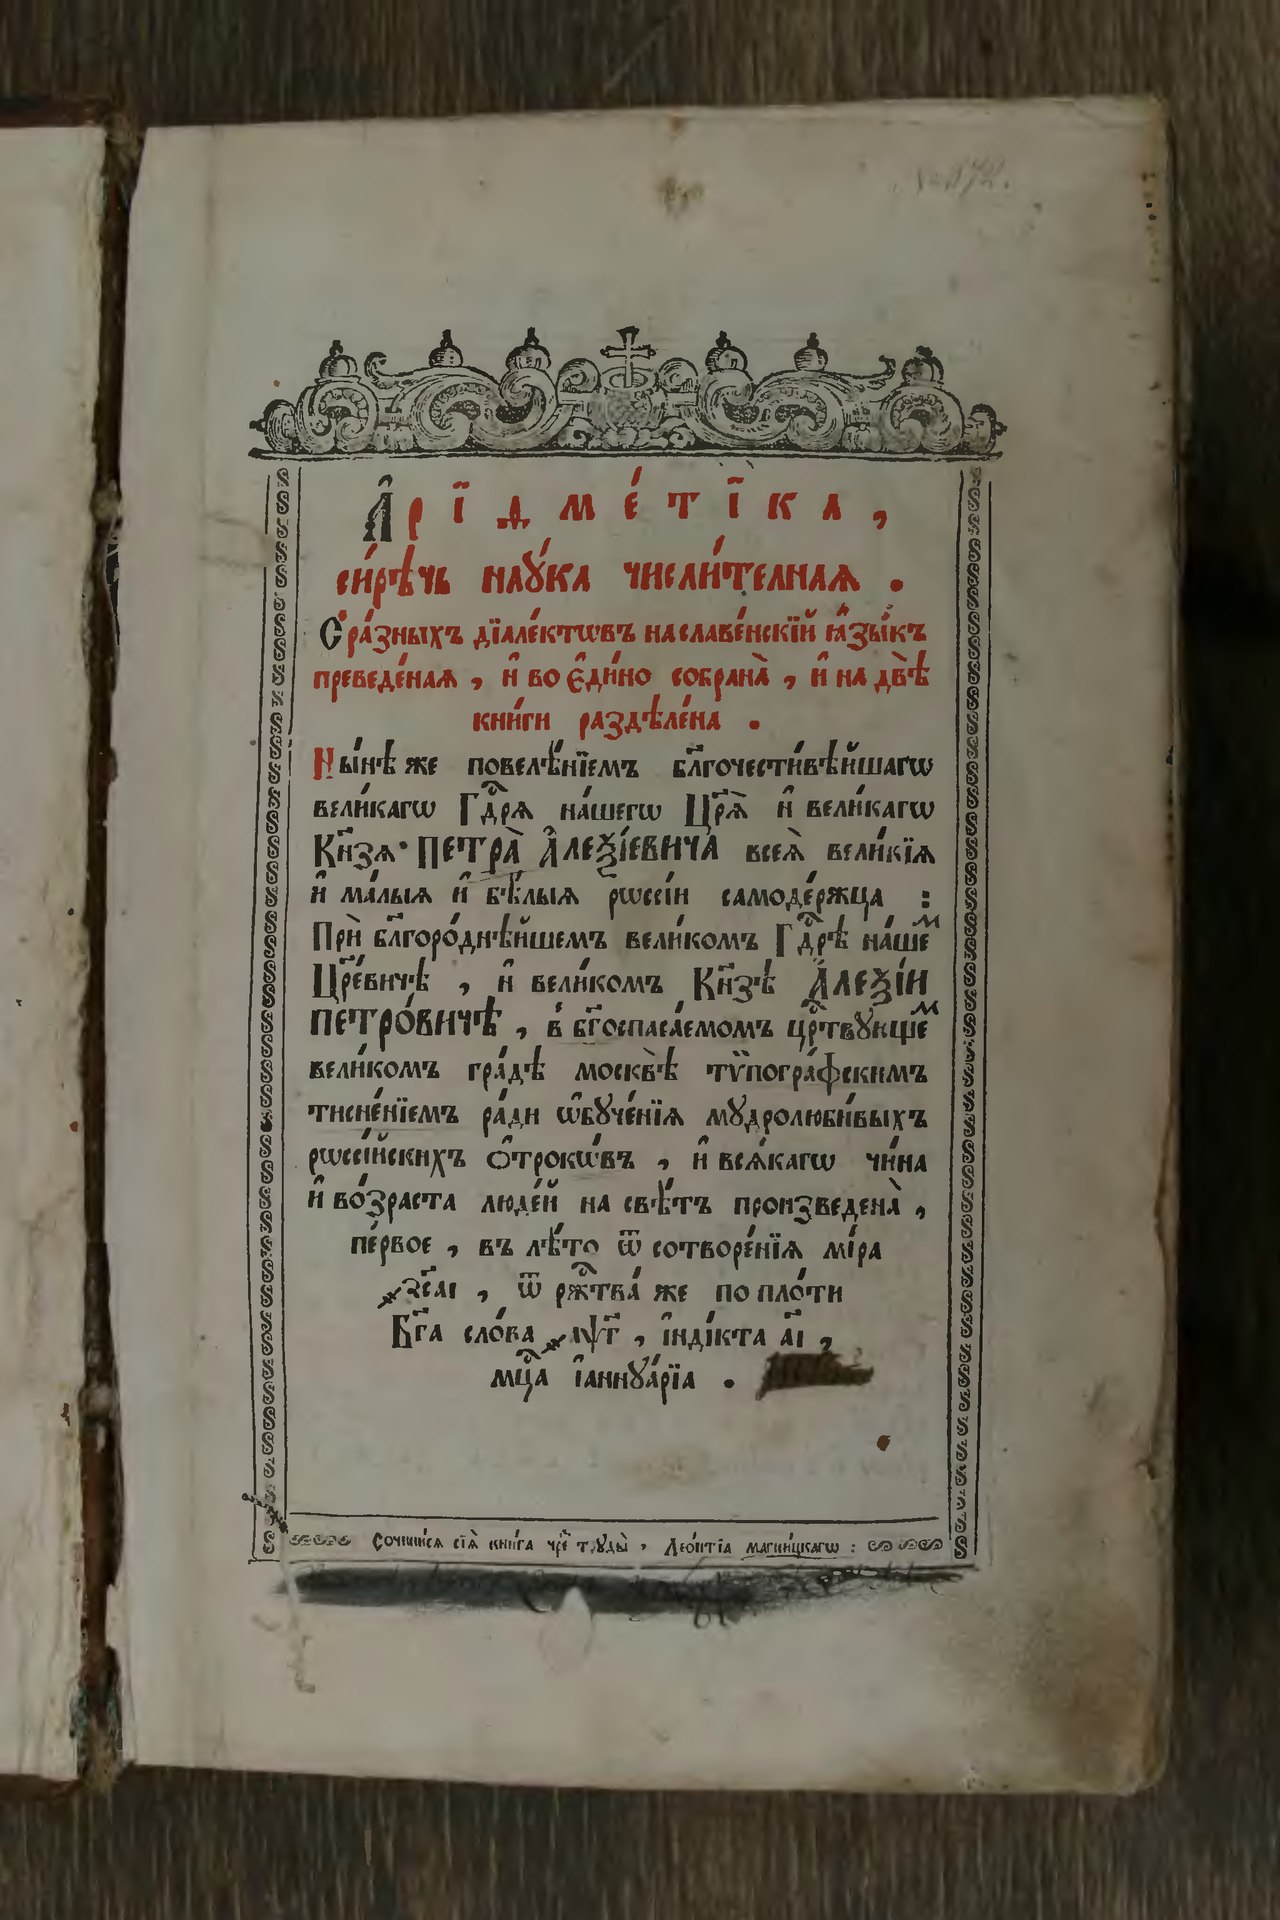 А҆рїѳме́тїка,
си́рѣчь наꙋ́ка числи́телнаѧ.
С̾ ра́зныхъ дїале́ктѡвъ на славе́нскїй ꙗ҆зы́къ
преведе́наѧ, и҆ во є҆ди́но собрана̀, и҆ на двѣ̀
кни́ги раздѣле́на.
Ны́нѣ же повелѣ́нїемъ бл҃гочести́вѣйшагѡ
вели́кагѡ Гдⷭ҇рѧ на́шегѡ Цр҃ѧ̀ и҆ вели́кагѡ
Кн҃зѧ ПЕТРА̀ А҆ЛЕѮІ́ЕВИЧА всеѧ̀ вели́кїѧ
и҆ ма́лыѧ и҆ бѣ́лыѧ рѡссі́и самоде́ржца :
Прѝ бл҃горо́днѣйшемъ вели́комъ Гдⷭ҇рѣ на́шеⷨ
Цр҃е́вичѣ, и҆ вели́комъ Кн҃зѣ А҆ЛЕѮІ́И
ПЕТРО́ВИЧѢ, в̾ бг҃оспаса́емомъ црⷭ҇твꙋющеⷨ
вели́комъ гра́дѣ москвѣ̀ тѷпогра́фскимъ
тисне́нїемъ ра́ди ѡ҆бꙋче́нїѧ мꙋдролюби́выхъ
рѡссі́йскихъ ѻ҆́трокѡвъ, и҆ всѧ́кагѡ чи́на
и҆ во́зраста люде́й на свѣ́тъ произведена̀,
пе́рвое, въ лѣ́то ѿ сотворе́нїѧ мі́ра
҂зс҃аі, ѿ ржⷭ҇тва́ же по пло́ти
Бг҃а сло́ва ҂аѱг҃, і҆нді́кта а҃і,
мцⷭ҇а і҆аннꙋа́рїа.
Сочини́сѧ сїѧ̀ кни́га чре́з̾ трꙋды̀, Леѻ́нтїа магни́цкагѡ :